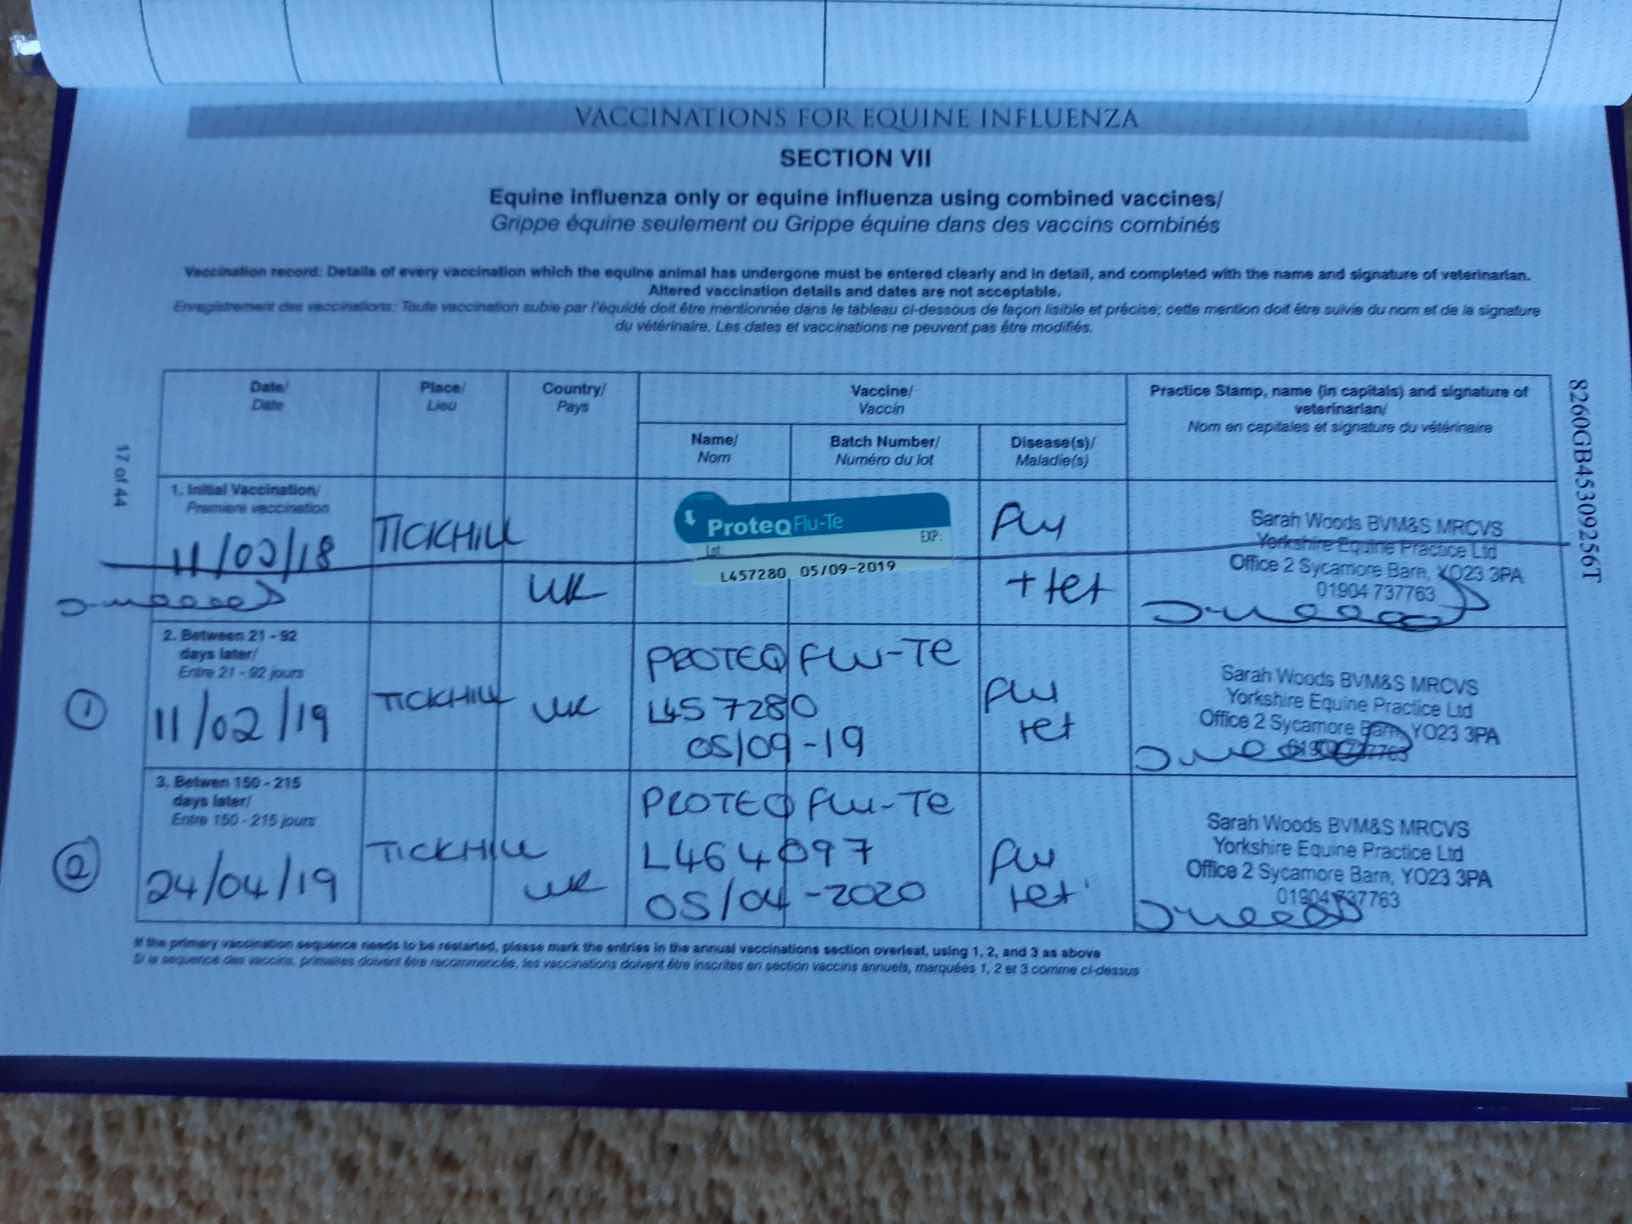 VACCINATIONS FOR EQUINE INFLUENZA
SECTION VII
Equine influenza only or equine influenza using combined vaccines/
Grippe équine seulement ou Grippe équine dans des vaccins combinés
Vaccination record: Details of every vaccination which the equine animal has undergone must be entered clearly and in detail, and completed with the name and signature of veterinarian.
Altered vaccination details and dates are not acceptable.
Enregistrement des vaccinations: Toute vaccination subie par l'équidé doit être mentionnée dans le tableau ci-dessous de façon lisible et précise; cette mention doit être suivie du nom et de la signature
du vétérinaire. Les dates et vaccinations ne peuvent pas être modifiés.
Date/
Date
Place/
Lieu
Country/
Pays
Vaccine/
Vaccin
Name/
Nom
Batch Number/
Numéro du lot
Disease(s)/
Maladie(s)
Practice Stamp, name (in capitals) and signature of
veterinarian/
Nom en capitales et signature du vétérinaire
17 of 44
8260GB45309256T
1. Initial Vaccination/
Premiere vaccination
11/02/18
TICKHILL
UK
ProteqFlu-Te
Lot:
EXP:
L457280 05/09-2019
Flu
+ tet
Sarah Woods BVM&S MRCVS
Yorkshire Equine Practice Ltd
Office 2 Sycamore Barn, YO23 3PA
01904 737763
2. Between 21 - 92
days later/
Entre 21 - 92 jours
1
11/02/19
TICKHILL
UK
PROTEQ FLU-TE
L457280
05/09-19
Flu
tet
Sarah Woods BVM&S MRCVS
Yorkshire Equine Practice Ltd
Office 2 Sycamore Barn, YO23 3PA
01904 737763
3. Betwen 150 - 215
days later/
Entre 150 - 215 jours
2
24/04/19
TICKHILL
UK
PROTEQ FLU-TE
L464097
05/04-2020
Flu
tet
Sarah Woods BVM&S MRCVS
Yorkshire Equine Practice Ltd
Office 2 Sycamore Barn, YO23 3PA
01904 737763
If the primary vaccination sequence needs to be restarted, please mark the entries in the annual vaccinations section overleaf, using 1, 2, and 3 as above
Si la sequence des vaccins, primaires doivent être recommencée, les vaccinations doivent être inscrites en section vaccins annuels, marquées 1, 2 et 3 comme ci-dessus